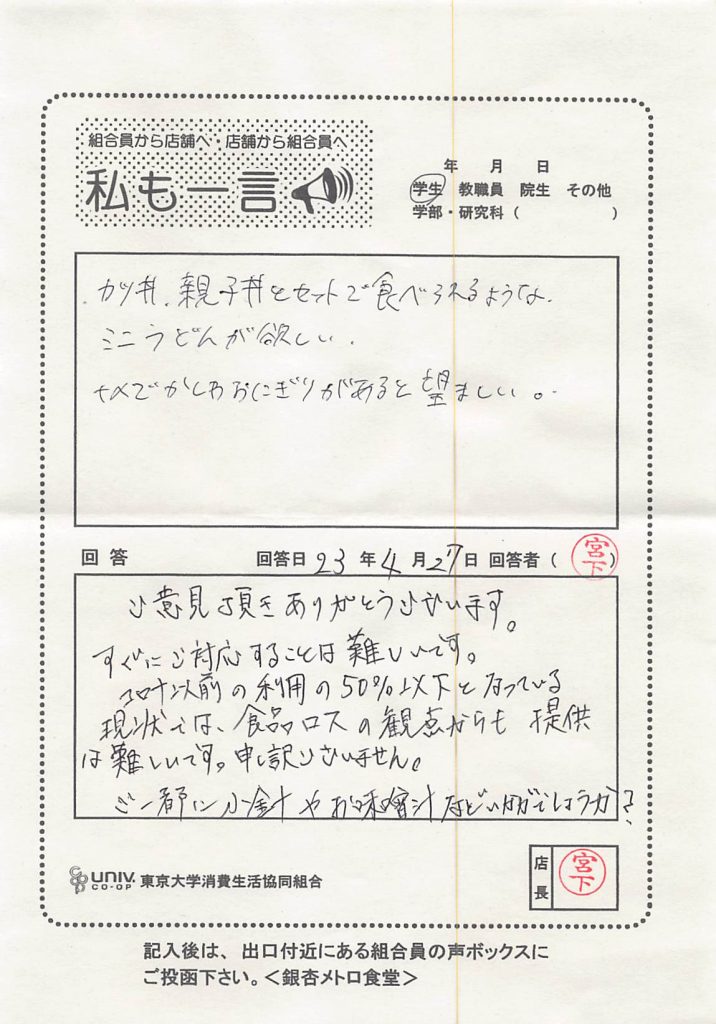 組合員から店舗へ・店舗から組合員へ
私も一言
年 月 日
学生 教職員 院生 その他
学部・研究科( )
カツ丼、親子丼とセットで食べられるような、
ミニうどんが欲しい。
でかしわおにぎりがあると望ましい。
回答 回答日 23年4月27日 回答者(宮下)
ご意見頂きありがとうございます。
すぐにご対応することは難しいです。
コロナ以前の利用の50%以下となっている
現状では、食品ロスの観点からも提供
は難しいです。申し訳ございません。
ご一緒に小鉢やお味噌汁などいかがでしょうか?
UNIV. CO-OP 東京大学消費生活協同組合
店長 宮下
記入後は、出口付近にある組合員の声ボックスに
ご投函下さい。<銀杏メトロ食堂>